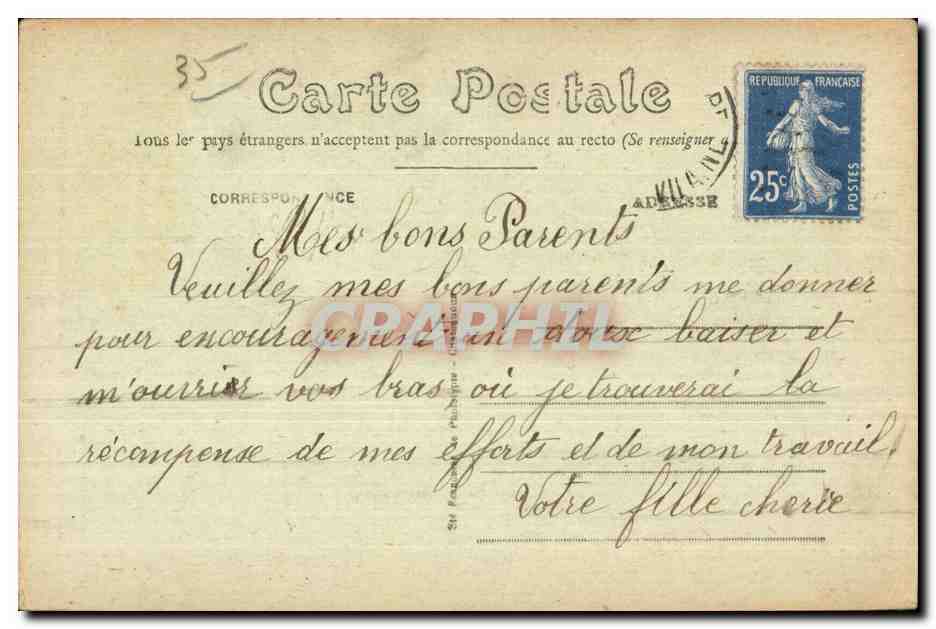 35
Carte Postale
Tous les pays étrangers n'acceptent pas la correspondance au recto (Se renseigner
CORRESPONDANCE
ADRESSE
REPUBLIQUE FRANÇAISE
25c
POSTES
VILAINE
Mes bons Parents
Veuillez mes bons parents me donner
pour encouragement un doux baiser et
m'ouvrir vos bras où je trouverai la
récompense de mes efforts et de mon travail.
Votre fille cherie
CPAPHIL
Sté de Phototypie -